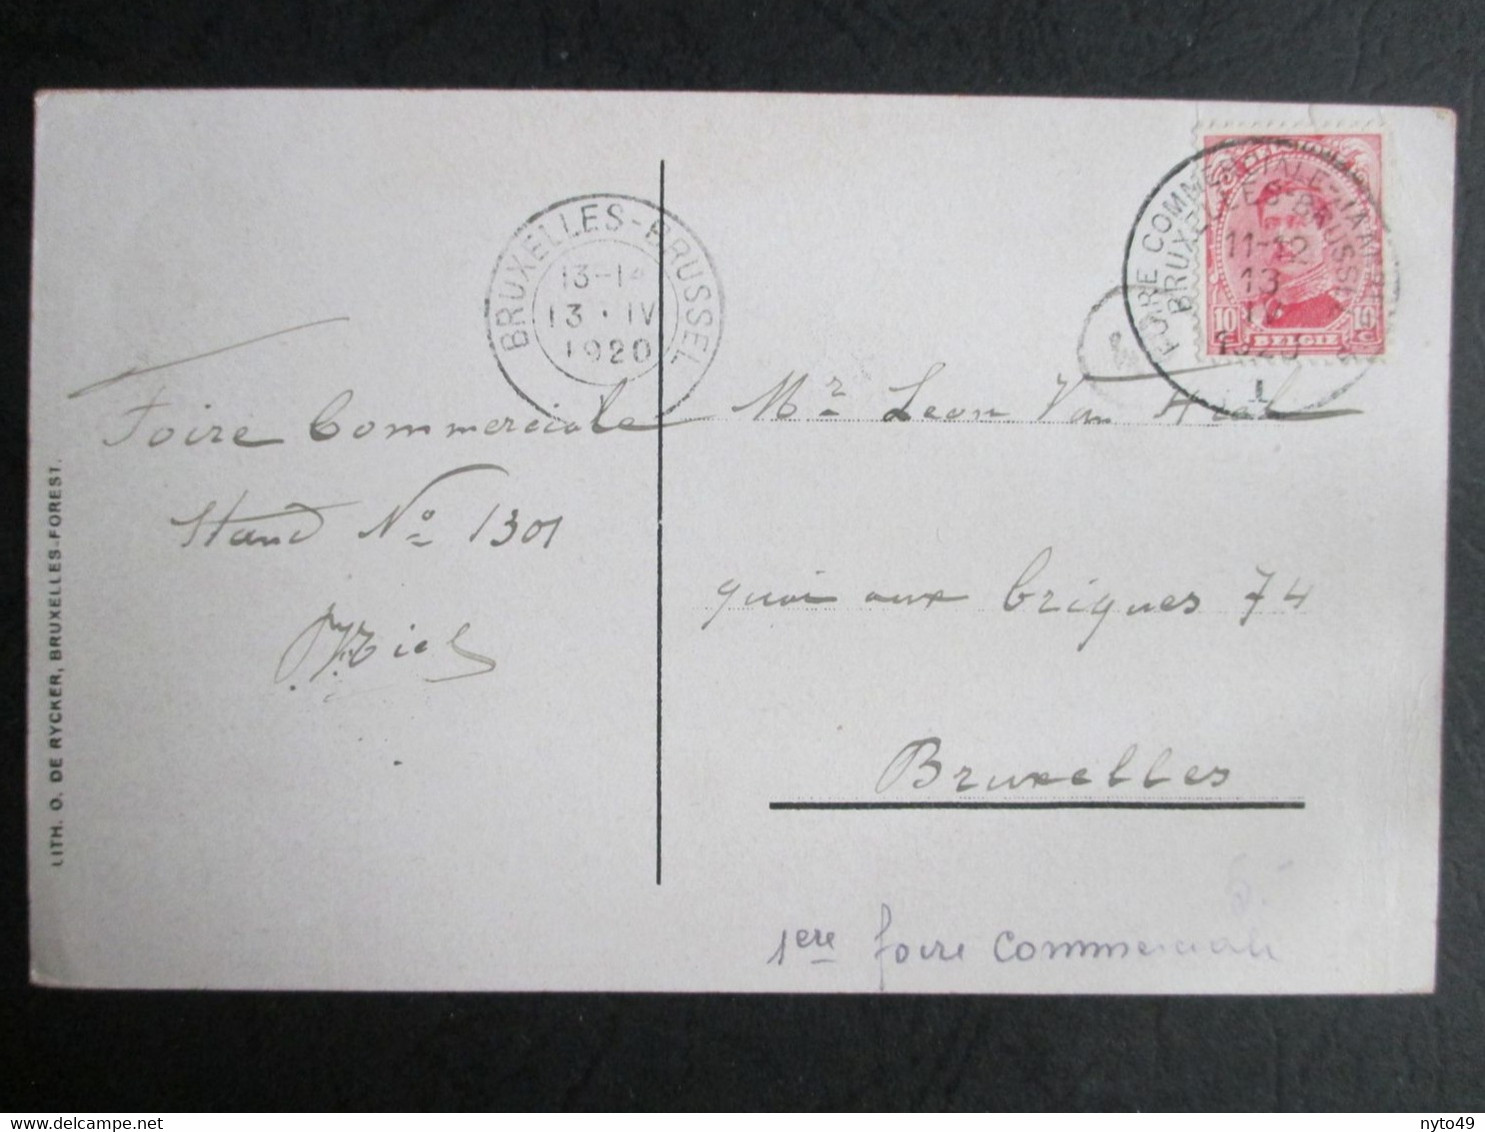 BRUXELLES-BRUSSEL
13-14
13 IV
1920
FOIRE COMMERCIALE-JAAR
BRUXELLES-BRUSSEL
11-12
13
IV
1920
1
10
BELGIE
Foire Commerciale
Stand No 1301
Mr Leon Van
quai aux briques 74
Bruxelles
1ere foire commerciale
LITH. O. DE RYCKER, BRUXELLES-FOREST.
nyto49